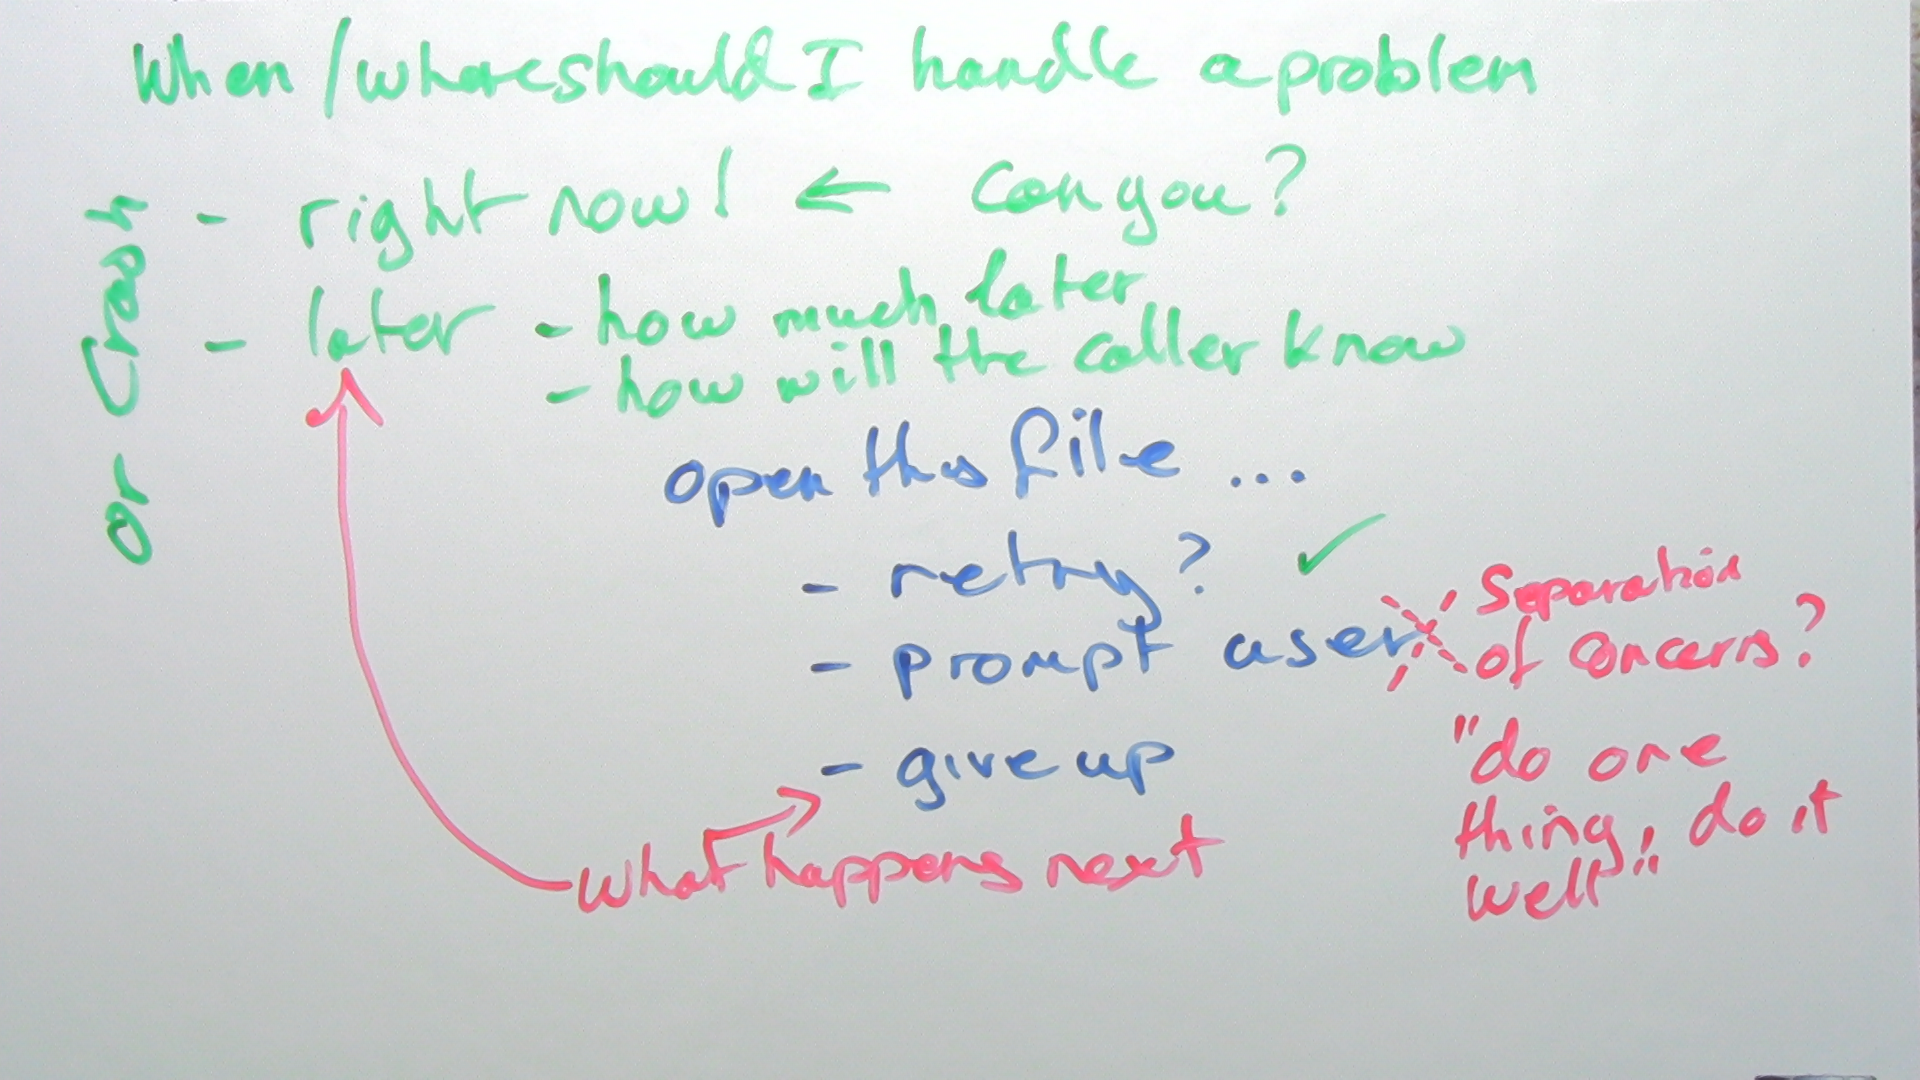 When / where should I handle a problem
or Crash
- right now! ← can you?
- later - how much later
- how will the caller know
open this file ...
- retry? ✓
- prompt user
Separation
of concerns?
- give up
"do one
thing, do it
well"
what happens next